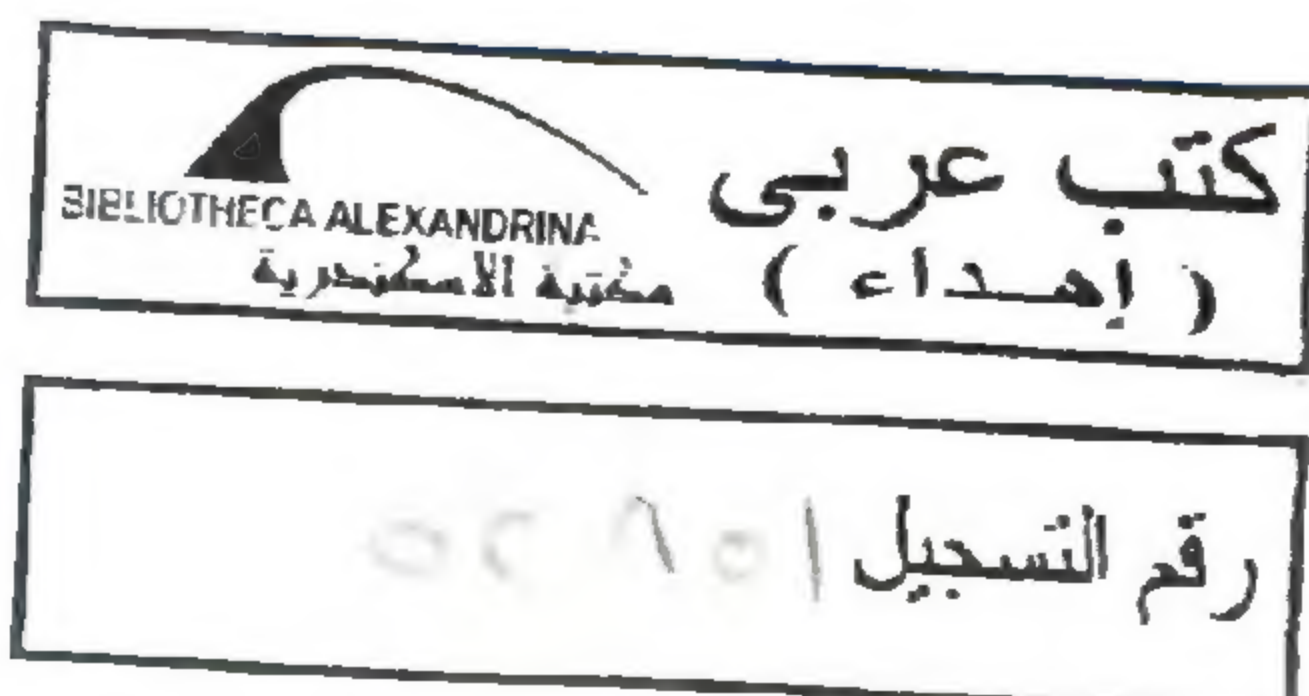 كتب عربى
( إهداء )
BIBLIOTHECA ALEXANDRINA
مكتبة الاسكندرية
رقم التسجيل